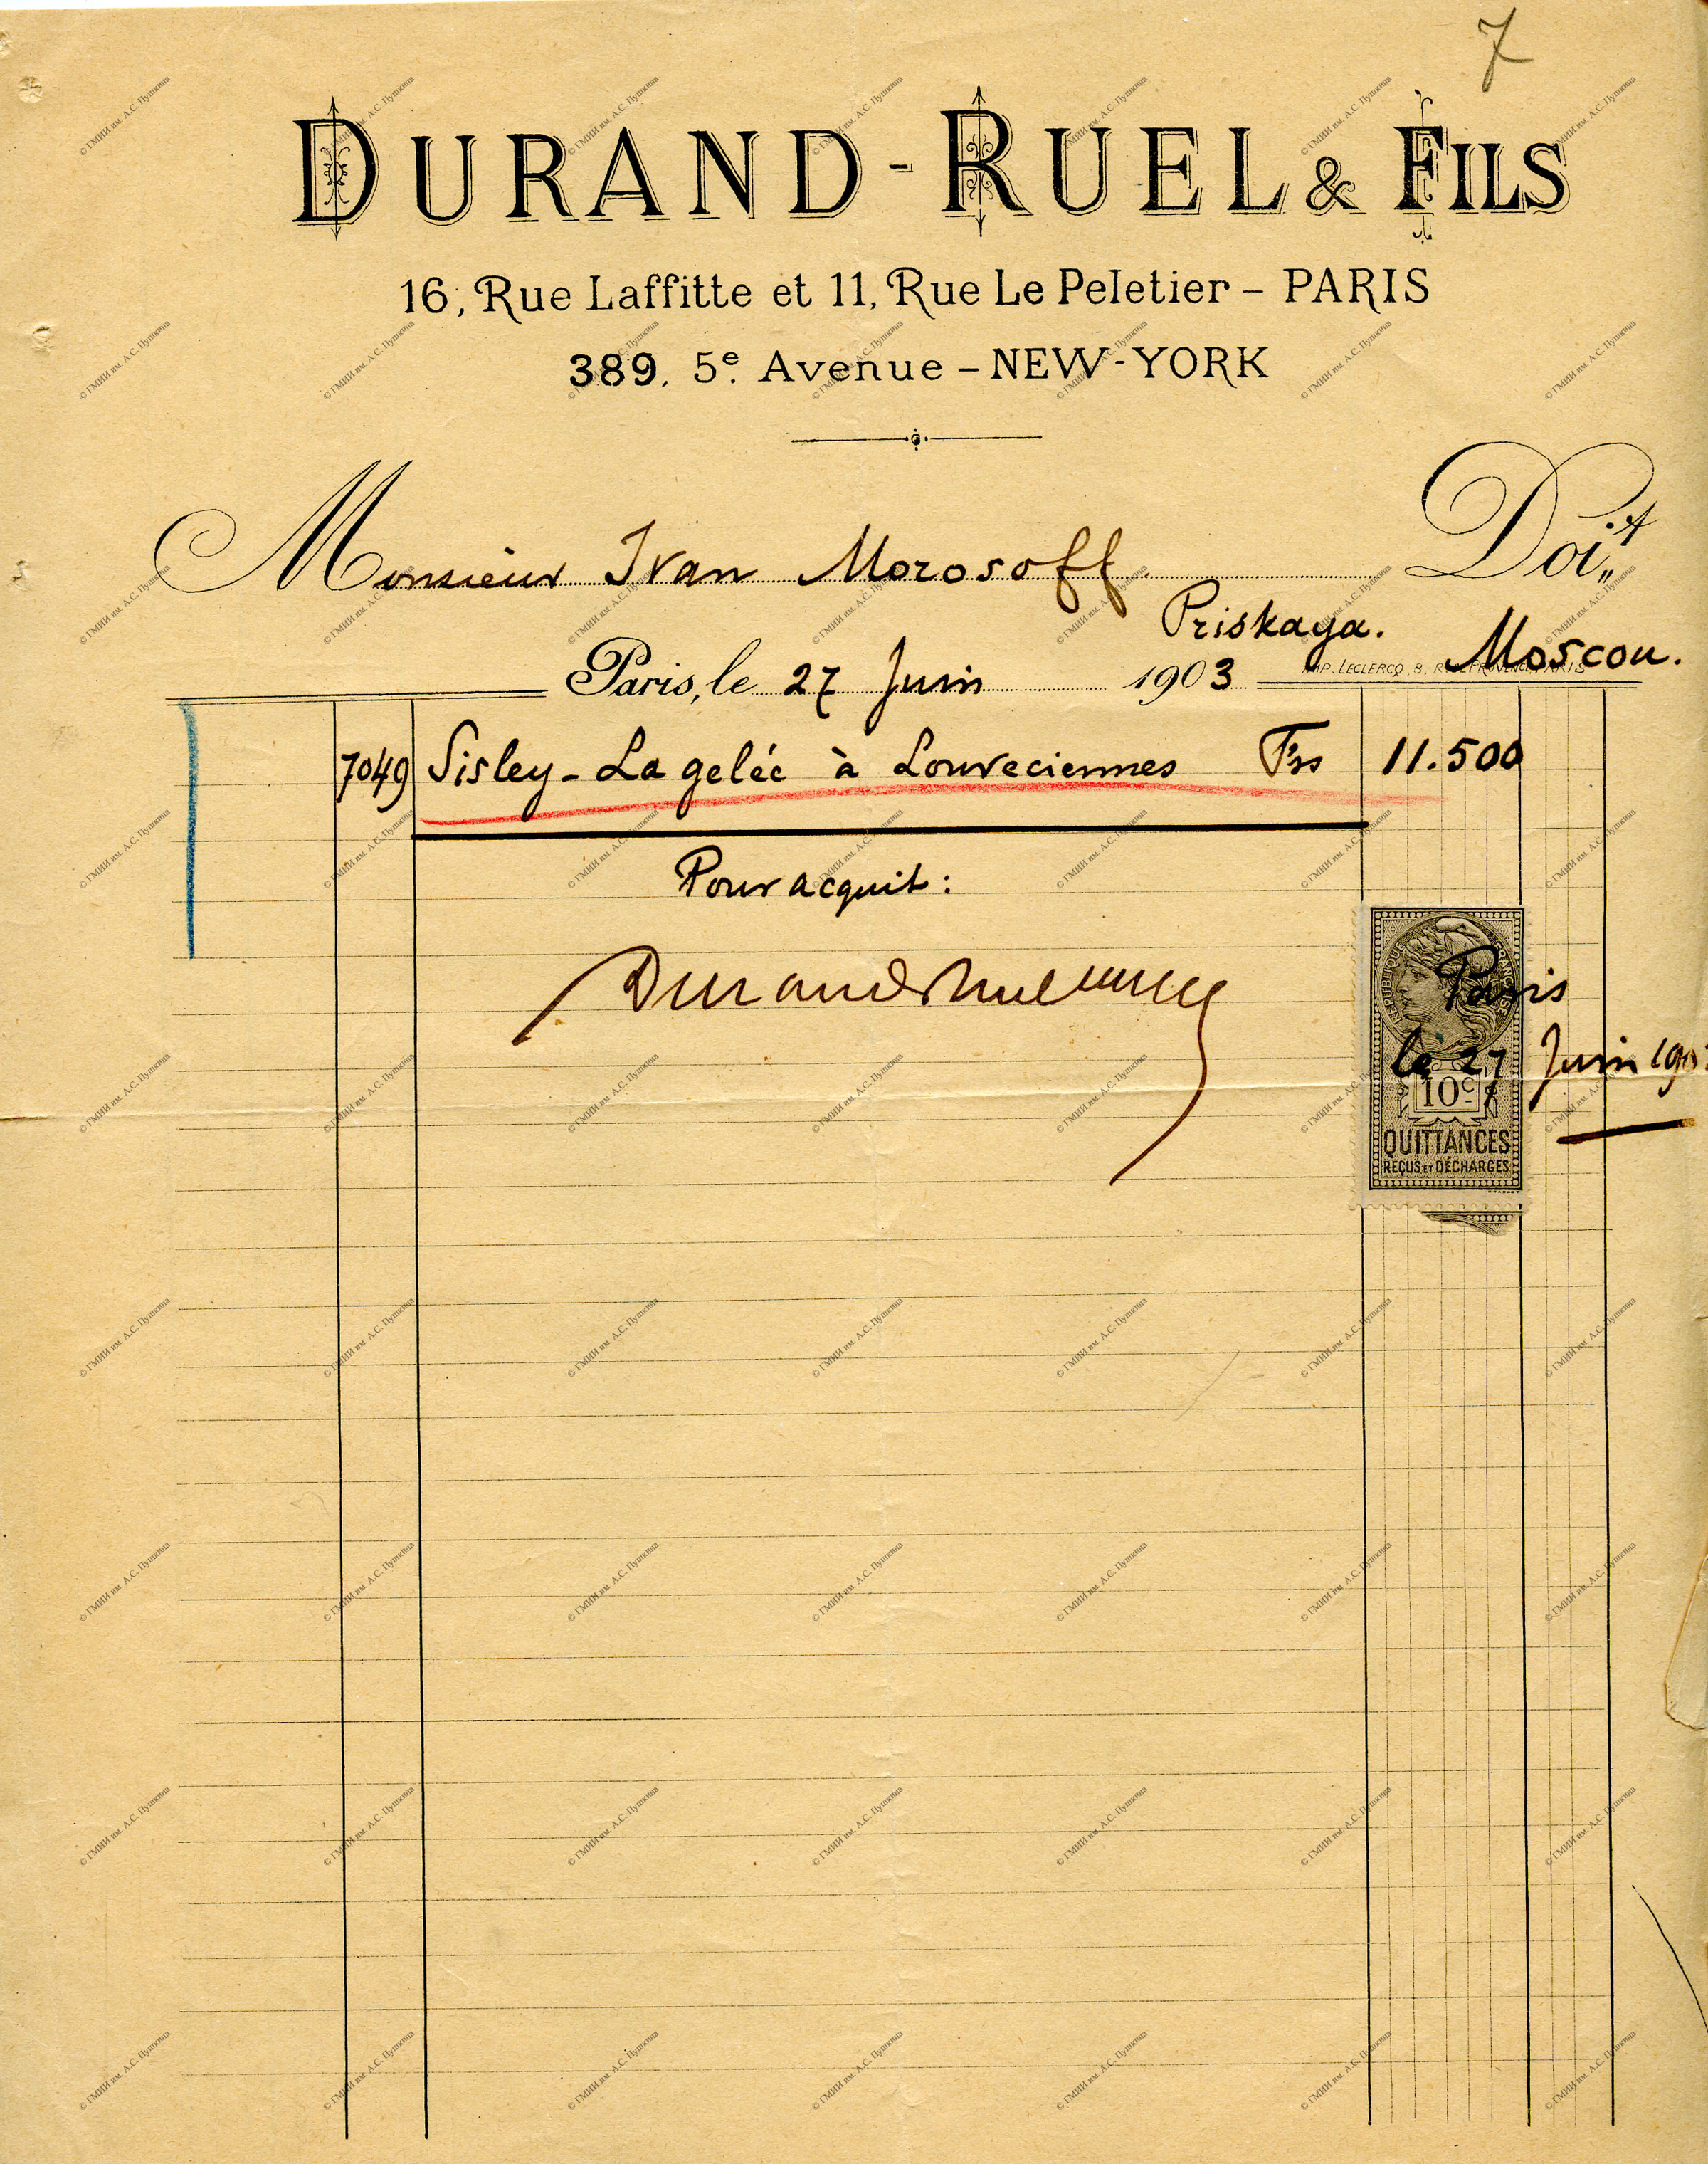 7
DURAND-RUEL & FILS
16, Rue Laffitte et 11, Rue Le Peletier – PARIS
389, 5e. Avenue – NEW-YORK
Monsieur Ivan Morosoff Doit
Priskaya. Moscou.
Paris, le 27 Juin 1903
IMP. LECLERCQ, 8, R. DE PROVENCE, PARIS
7049 Sisley - La gelée à Louveciennes Frs 11.500
Pour acquit:
Durand Ruel
REPUBLIQUE FRANÇAISE
Paris
le 27 Juin 190
10c
QUITTANCES
REÇUS ET DÉCHARGES
© ГМИИ им. А.С. Пушкина